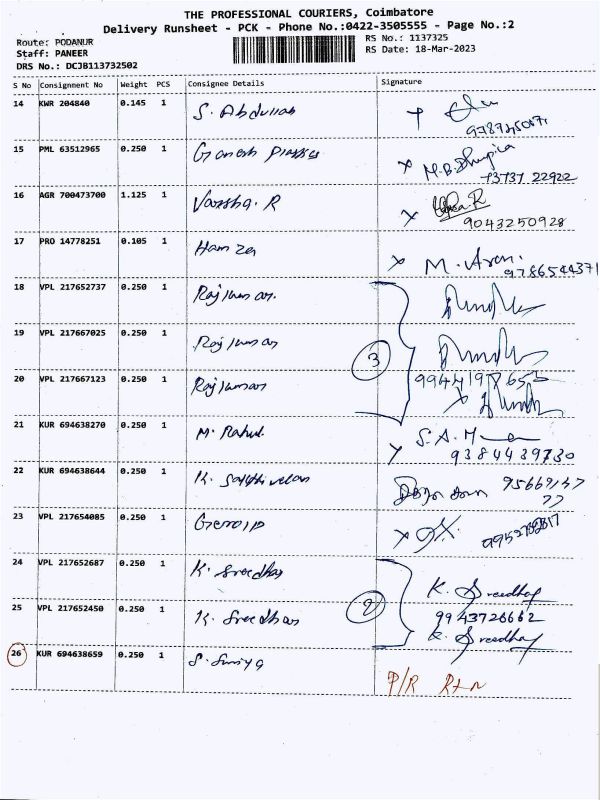 THE PROFESSIONAL COURIERS, Coimbatore
Delivery Runsheet - PCK - Phone No.:0422-3505555 - Page No.:2
Route: PODANUR
Staff: PANEER
DRS No.: DCJB113732502
RS No.: 1137325
RS Date: 18-Mar-2023
S No Consignment No Weight PCS Consignee Details Signature
14 KWR 204840 0.145 1 S. Abdullah
15 PML 63512965 0.250 1 Ganesh Plastics
73737 22922
16 AGR 700473700 1.125 1 Varsha. R
9043250928
17 PRO 14778251 0.105 1 Hamza M. Arun.
9786544371
18 VPL 217652737 0.250 1 Rajkumar.
19 VPL 217667025 0.250 1 Rajkumar
3
20 VPL 217667123 0.250 1 Rajkumar
21 KUR 694638270 0.250 1 M. Rahul.
9384439730
22 KUR 694638644 0.250 1 K. Sakthivelan
23 VPL 217654085 0.250 1
24 VPL 217652687 0.250 1 K. Sreedhar K. Sreedhar
2
25 VPL 217652450 0.250 1 K. Sreedhar 9943726662
K. Sreedhar
26 KUR 694638659 0.250 1 S. Suriya
P/R Rtn